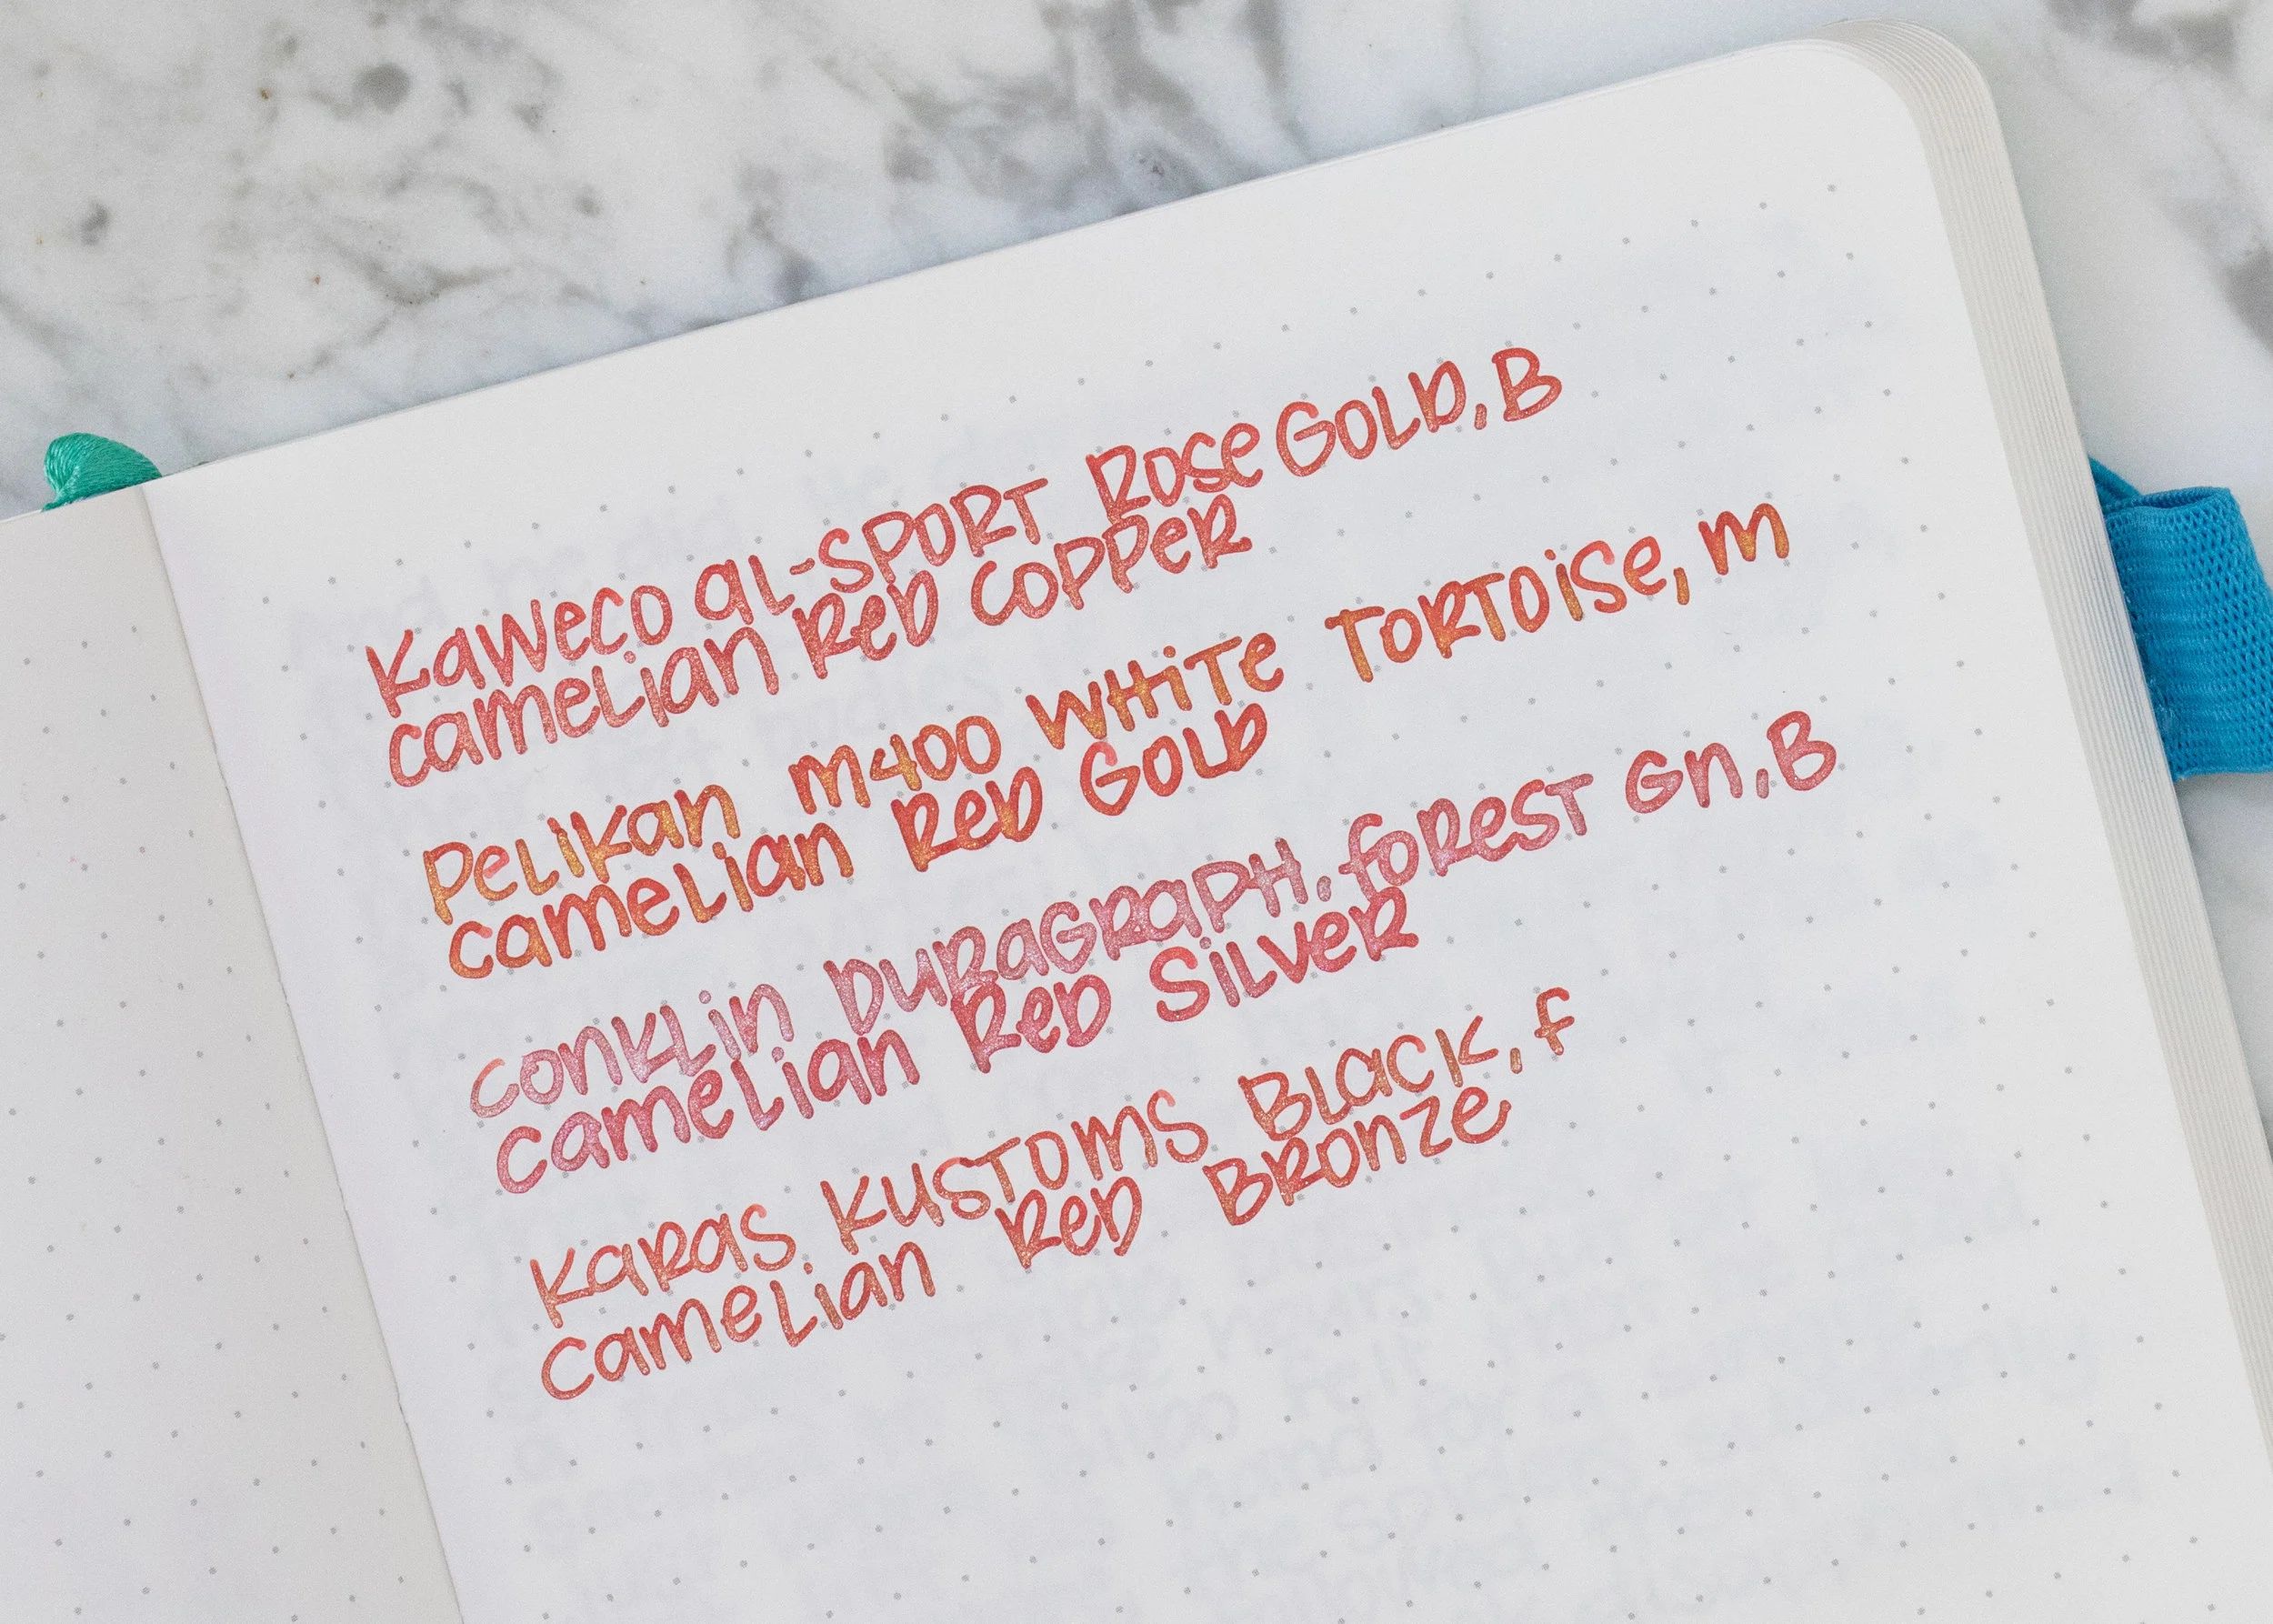 Kaweco AL-SPORT Rose Gold, B
Camelian Red Copper
Pelikan M400 White Tortoise, M
Camelian Red Gold
Conklin Duragraph, Forest Gn, B
Camelian Red Silver
Karas Kustoms Black, F
Camelian Red Bronze